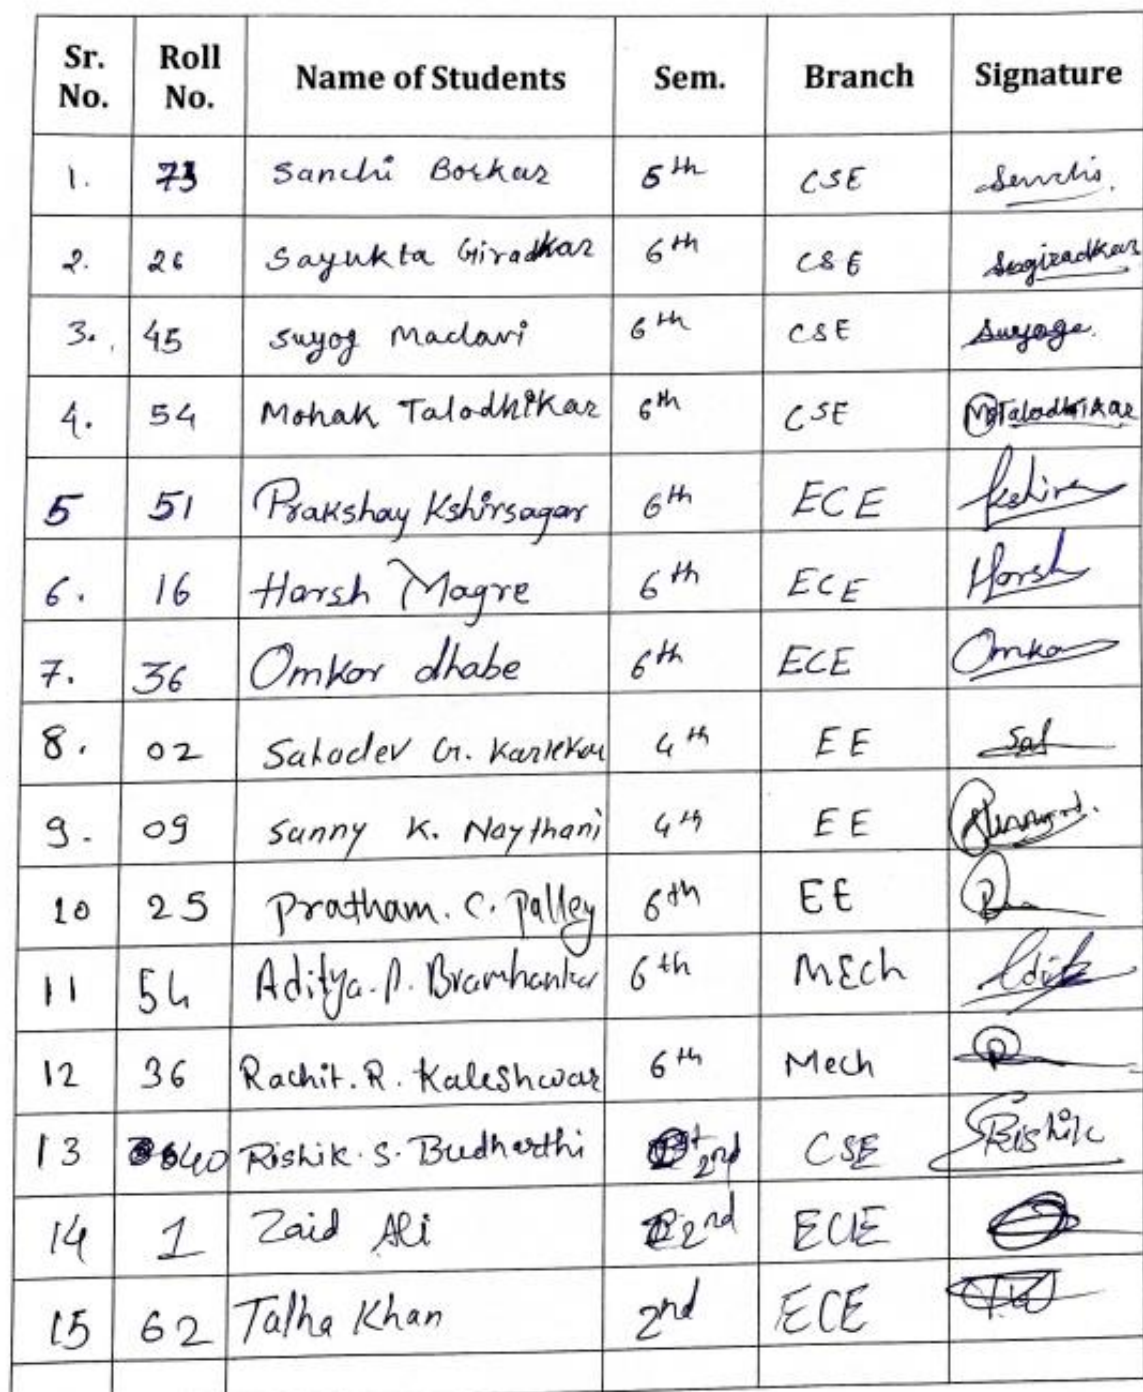 Sr. No. Roll No. Name of Students Sem. Branch Signature
1. 73 Sanchi Borkar 5th CSE Sanchi
2. 26 Sayukta Giradkar 6th CSE Sagiradkar
3. 45 Suyog Madavi 6th CSE Suyoga
4. 54 Mohak Talodhikar 6th CSE MTalodhikar
5 51 Prakshay Kshirsagar 6th ECE
6. 16 Harsh Magre 6th ECE Harsh
7. 36 Omkar dhabe 6th ECE Omkar
8. 02 Sahadev G. Karlekar 4th EE Sah
9. 09 Sunny K. Naythani 4th EE
10 25 Pratham. C. Palley 6th EE
11 54 Aditya. P. Bramhankar 6th MEch
12 36 Rachit. R. Kaleshwar 6th Mech R
13 40 Rishik. S. Budharthi 2nd CSE Rishik
14 1 Zaid Ali 2nd ECE
15 62 Talha Khan 2nd ECE